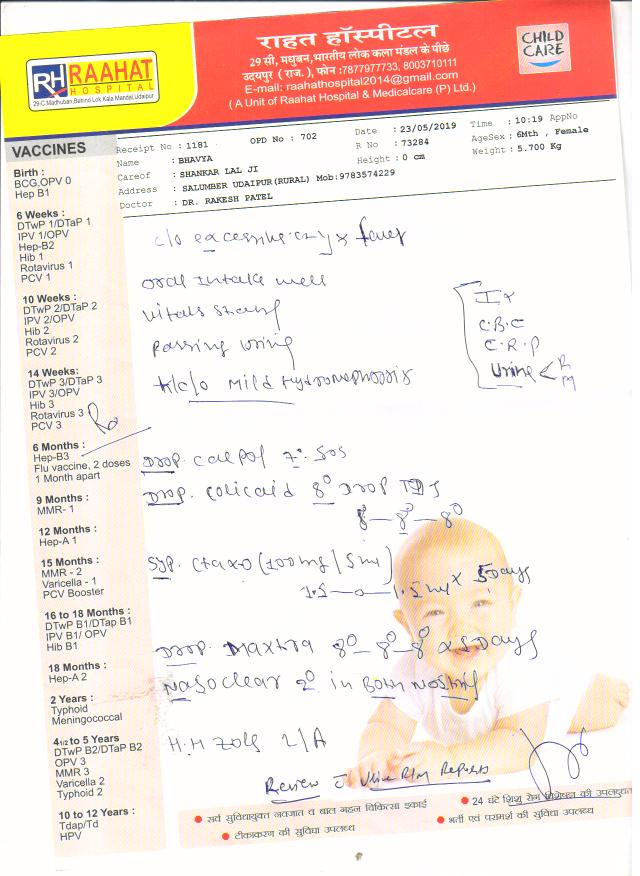 राहत हॉस्पीटल
29 सी, मधुबन,भारतीय लोक कला मंडल के पीछे
उदयपुर ( राज. ), फोन :7877977733, 8003710111
E-mail: raahathospital2014@gmail.com
( A Unit of Raahat Hospital & Medicalcare (P) Ltd.)
RH RAAHAT
HOSPITAL
29-C,Madhuban,Behind Lok Kala Mandal,Udaipur
CHILD
CARE
Receipt No : 1181 OPD No : 702 Date : 23/05/2019 Time : 10:19 AppNo
Name : BHAVYA R No : 73284 AgeSex : 6Mth , Female
Careof : SHANKAR LAL JI Height : 0 cm Weight : 5.700 Kg
Address : SALUMBER UDAIPUR(RURAL) Mob:9783574229
Doctor : DR. RAKESH PATEL
VACCINES
Birth :
BCG,OPV 0
Hep B1
6 Weeks :
DTwP 1/DTaP 1
IPV 1/OPV
Hep-B2
Hib 1
Rotavirus 1
PCV 1
10 Weeks :
DTwP 2/DTaP 2
IPV 2/OPV
Hib 2
Rotavirus 2
PCV 2
14 Weeks:
DTwP 3/DTaP 3
IPV 3/OPV
Hib 3
Rotavirus 3
PCV 3
6 Months :
Hep-B3
Flu vaccine, 2 doses
1 Month apart
9 Months :
MMR- 1
12 Months :
Hep-A 1
15 Months :
MMR - 2
Varicella - 1
PCV Booster
16 to 18 Months :
DTwP B1/DTap B1
IPV B1/ OPV
Hib B1
18 Months :
Hep-A 2
2 Years :
Typhoid
Meningococcal
41/2 to 5 Years
DTwP B2/DTaP B2
OPV 3
MMR 3
Varicella 2
Typhoid 2
10 to 12 Years :
Tdap/Td
HPV
c/o excessive cry x fever
oral intake well
vitals
passing urine
k/c/o mild hydronephrosis
Ix
C.B.C
C.R.P
Urine < R
M
Rx
Drop. calpol SOS
Drop. colicaid 8° Drop TDS
8°-8°-8°
Syp. (100mg/5ml)
1.5-0-1.5ml x 5days
Drop. Maxtra 8°-8°-8° x 5Days
Nasoclear 2° in Both Nostril
L/A
Review c Urine R/M Reports
सर्व सुविधायुक्त नवजात व बाल गहन चिकित्सा इकाई
24 घंटे शिशु रोग विशेषज्ञ की उपलब्धता
टीकाकरण की सुविधा उपलब्ध
भर्ती एवं परामर्श की सुविधा उपलब्ध